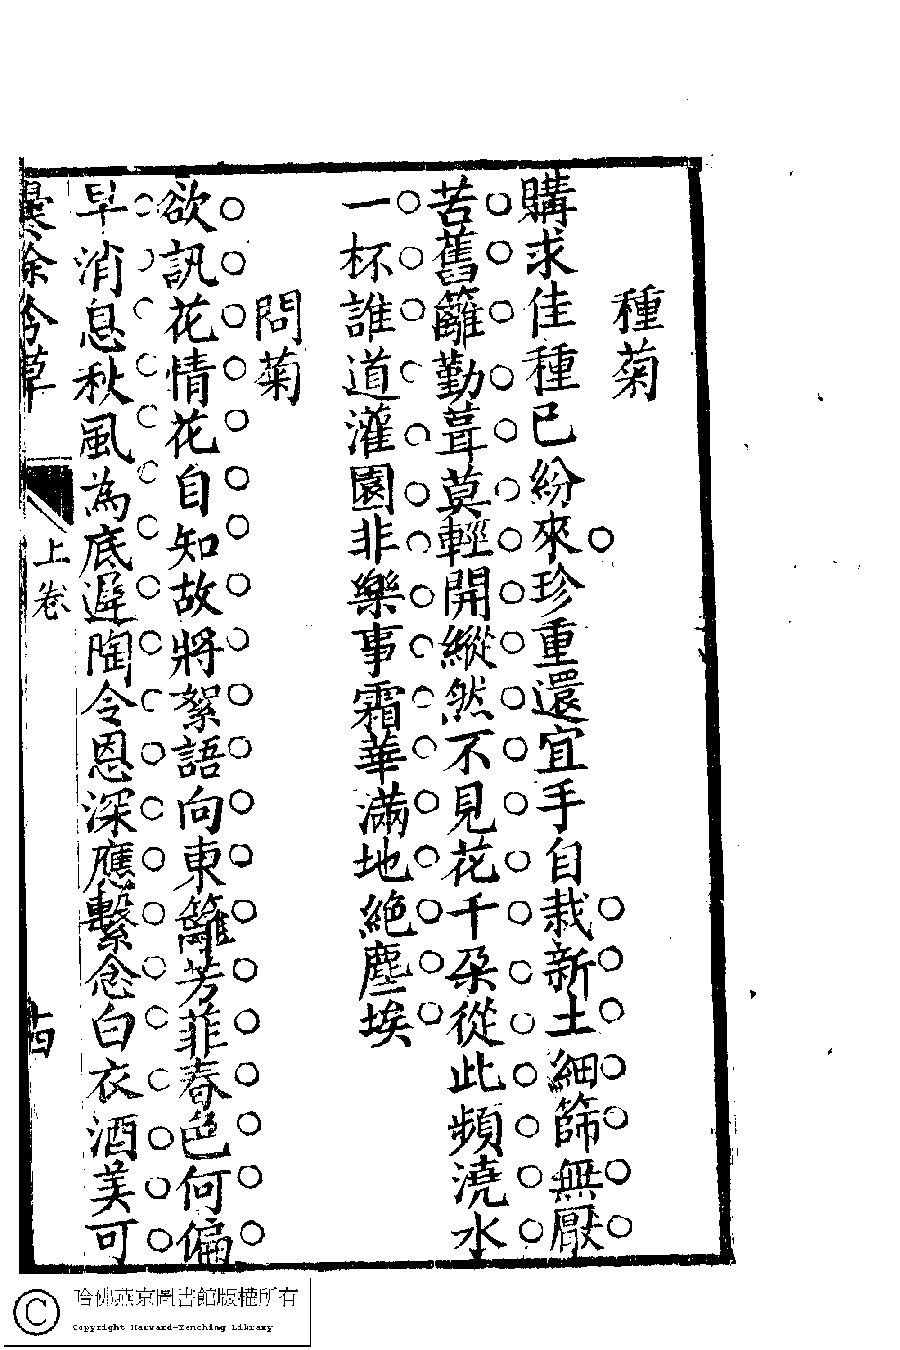 種菊
購求佳種已紛來珍重還宜手自栽新土細篩無厭
苦舊籬勤葺莫輕開縱然不見花千朵從此頻澆水
一杯誰道灌園非樂事霜華滿地絕塵埃
問菊
欲訊花情花自知故將絮語向東籬芳菲春色何偏
早消息秋風為底遲陶令恩深應繫念白衣酒美可
吟草
上卷
哈佛燕京圖書館版權所有
Copyright Harvard-Yenching Library